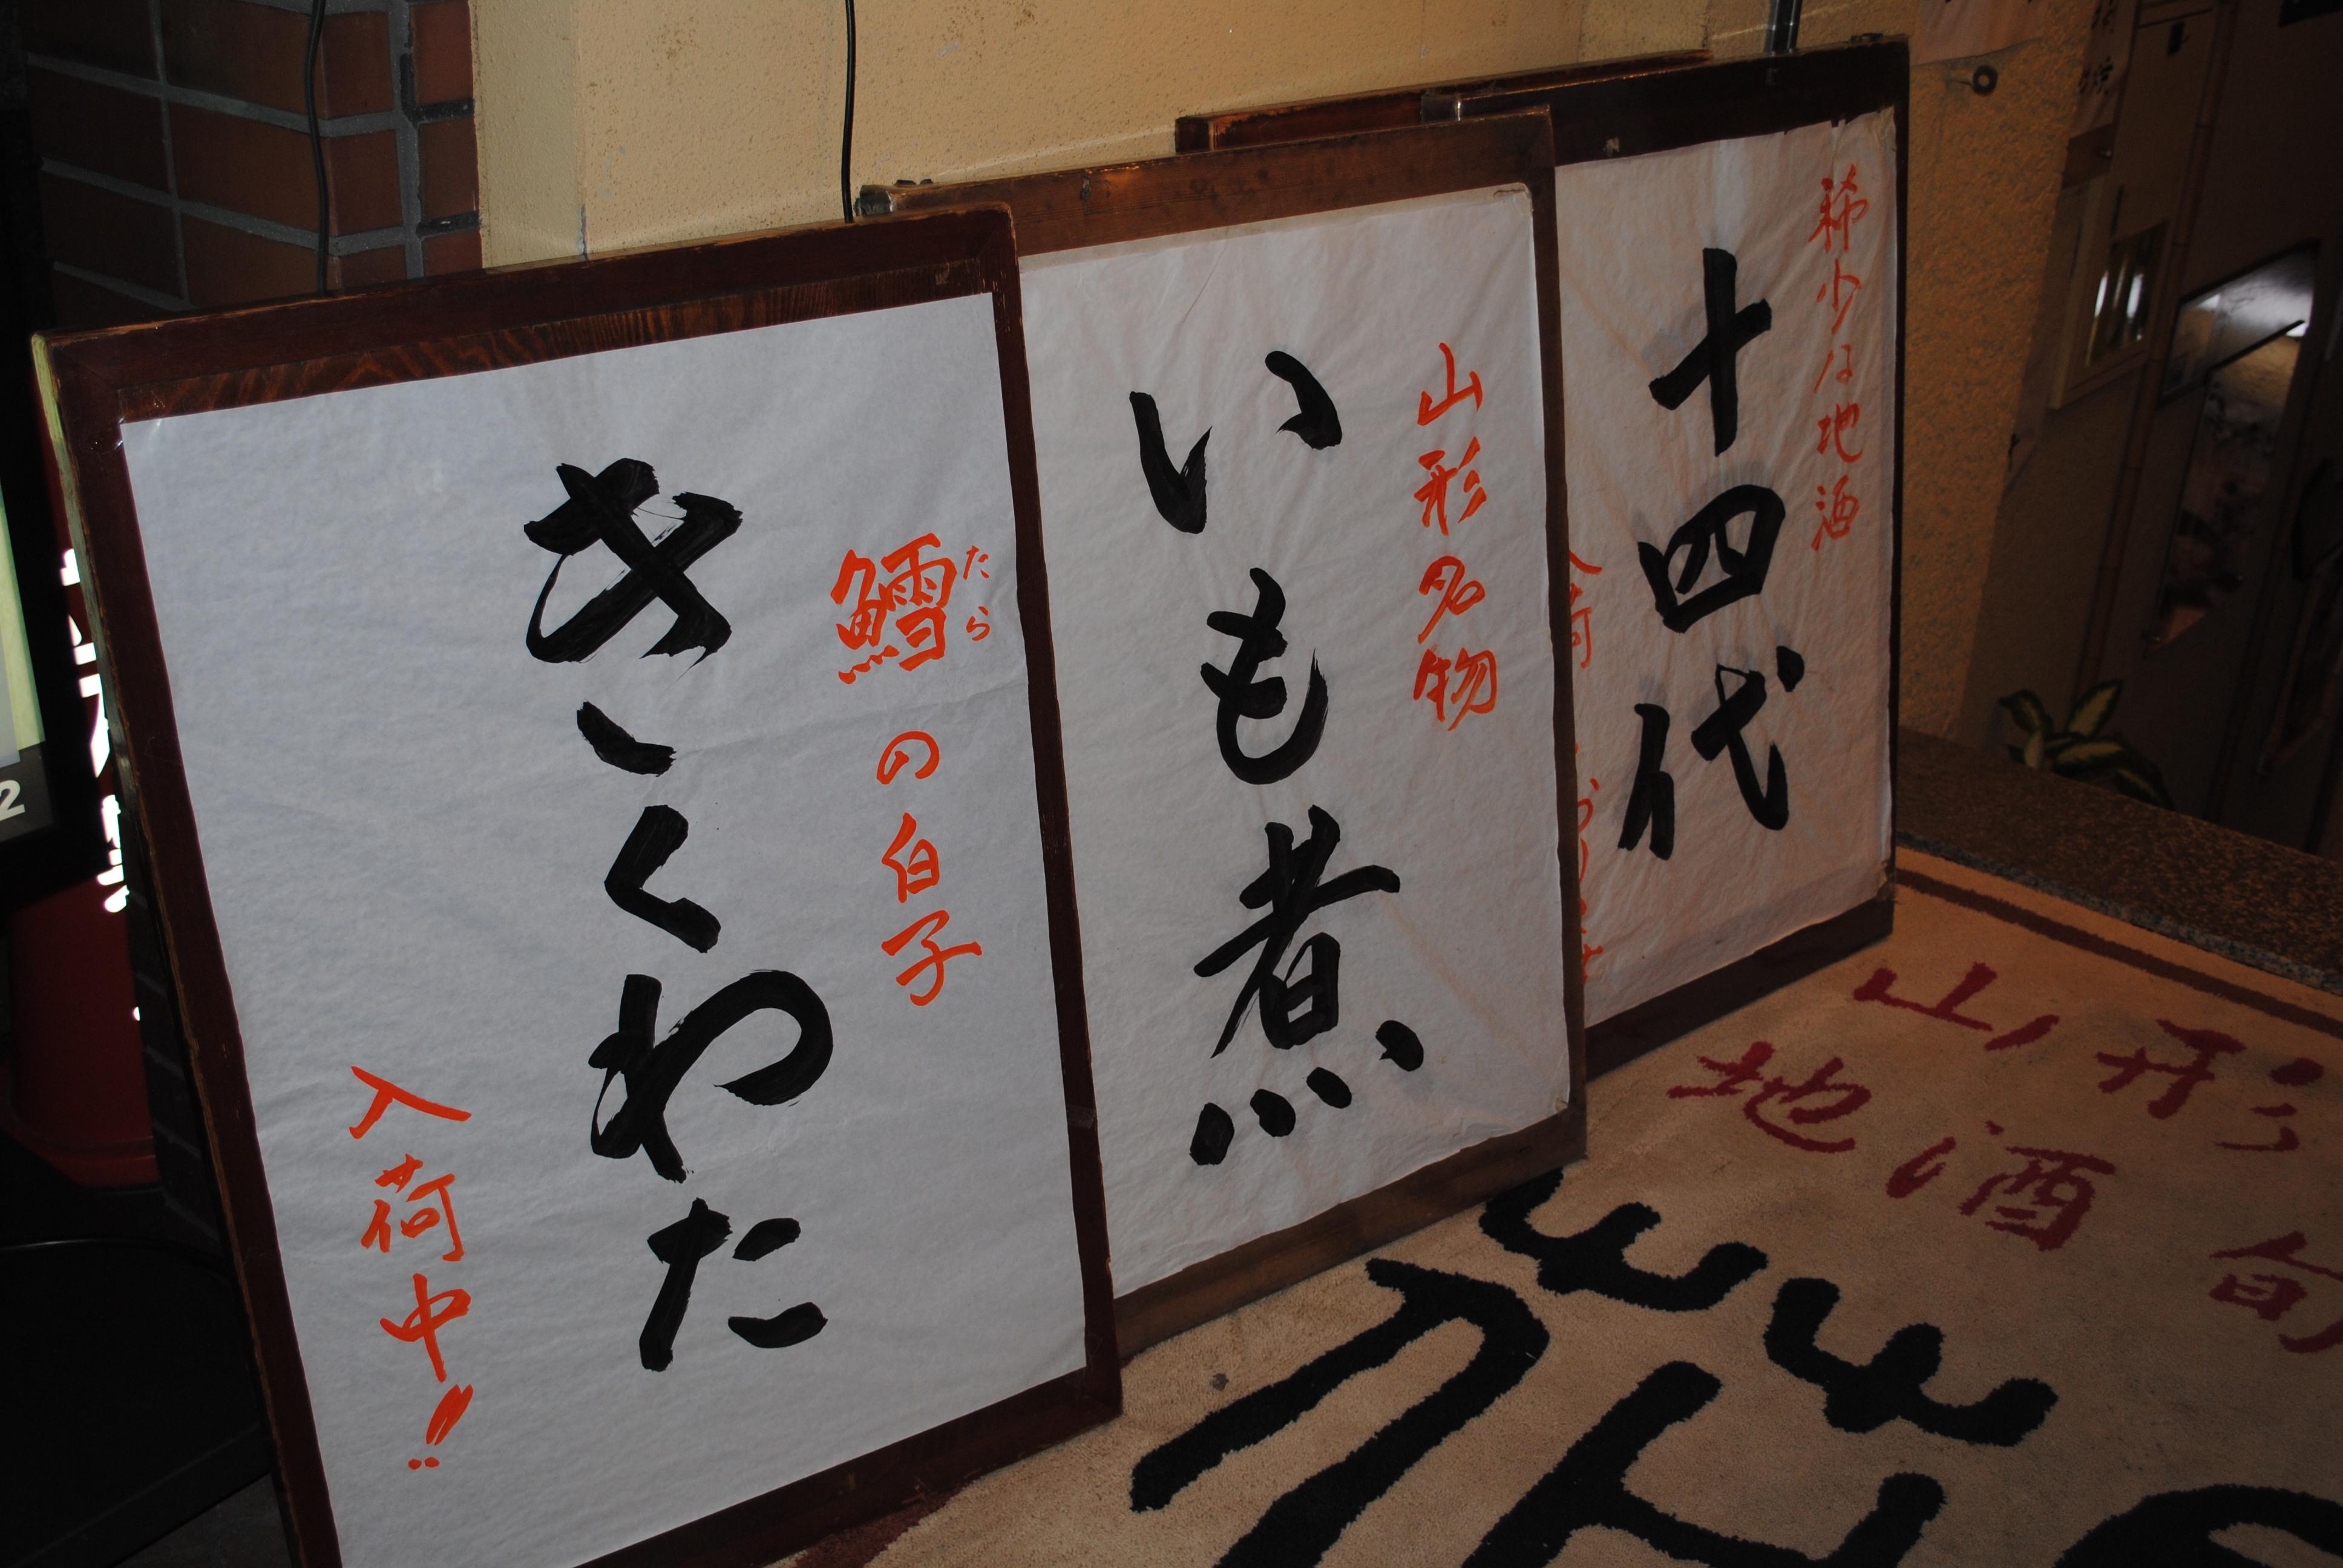 鱈の白子
たら
きくわた
入荷中!!
山形名物
いも煮
稀少な地酒
十四代
入荷
山形
地酒
旬
2